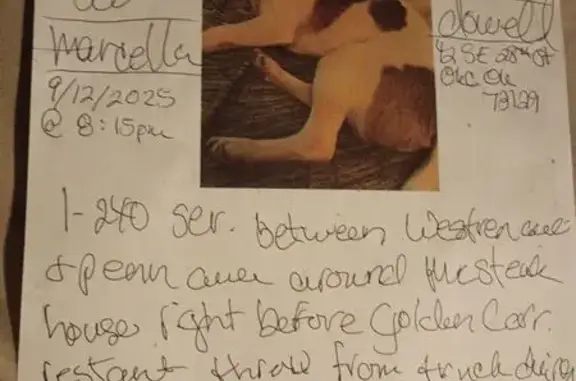 marcella
9/12/2025
@ 8:15pm
dowell
SE 28th St
OKC OK
73129
I-240 ser. between Westren ave
& penn ave around the steak
house right before Golden Corr.
restant throw from truck